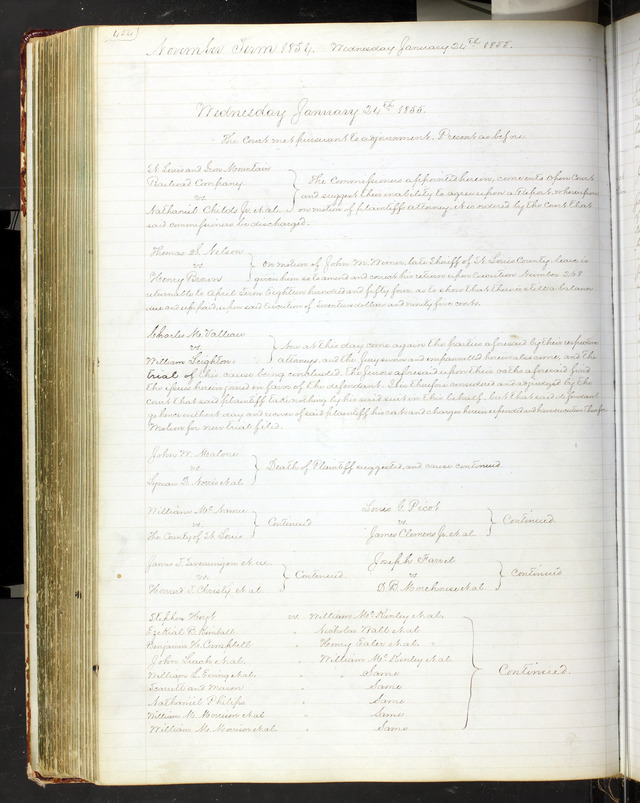 454
November Term 1854. Wednesday January 24th 1855.
Wednesday January 24th 1855.
The Court met pursuant to adjournment. Present as before
St Louis and Iron Mountain
Railroad Company
vs
Nathaniel Childs Jr. et al
The Commissioners appointed herein, come into open Court
and suggest their inability to agree upon a Report, whereupon
on motion of plaintiffs attorney, it is ordered by the Court that
said commissioners be discharged.
Thomas S. Nelson
vs
Henry Brown
On motion of John M. Wimer, late Sheriff of St Louis County, leave is
given him to amend and correct his return upon Execution Number 268
returnable to April Term Eighteen hundred and fifty four, as to show that there is still a balance
due and unpaid upon said Execution of Seventeen dollars and ninety five cents.
Charles McVallier
vs.
William Leighton
Now at this day come again the parties aforesaid by their respective
attorneys, and the Jury sworn and empannelled herein also come, and the
trial of this cause being concluded, the Jurors aforesaid upon their oaths aforesaid find
the issues herein joined in favor of the defendant. It is therefore considered and adjudged by the
Court that said plaintiff take nothing by his said suit in this behalf, but that said defendant
go hence without day and recover of said plaintiff his costs and charges herein expended and have execution therefor
Motion for new trial filed.
John W. Malone
vs
Lyman D. Norris et al
Death of Plaintiff suggested, and cause continued.
William McNamee
vs.
The County of St Louis
Continued
Louis G. Picot
vs
James Clemens Jr. et al
Continued.
James T. Swearingen et ux.
vs.
Howard T. Christy et al
Continued.
Joseph Farrel
vs
D. B. Morehouse et al
Continued
Stephen Hoyt vs. William McKinley et al.
Ezekial B. Kimball " Nicholas Wall et al
Benjamin H. Campbell " Henry Ealer et al "
John Leach et al. " William McKinley et al
William L. Ewing et al. " " Same
and Mason " Same
Nathaniel Philips " Same
William M. Morrison et al " Same
William M. Morrison et al " Same
Continued.